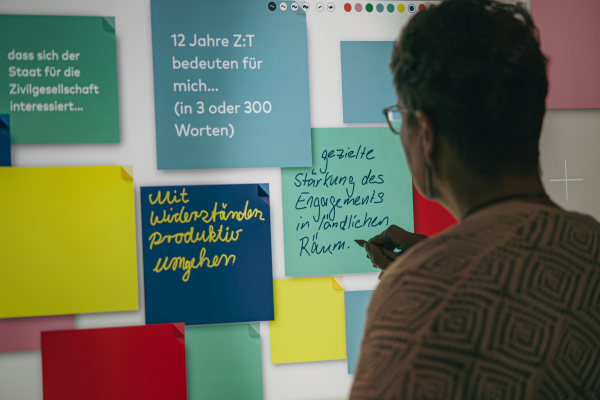 dass sich der
Staat für die
Zivilgesellschaft
interessiert...
12 Jahre Z:T
bedeuten für
mich...
(in 3 oder 300
Worten)
Mit
Widerständen
produktiv
umgehen
gezielte
Stärkung des
Engagements
in ländlichen
Raum.